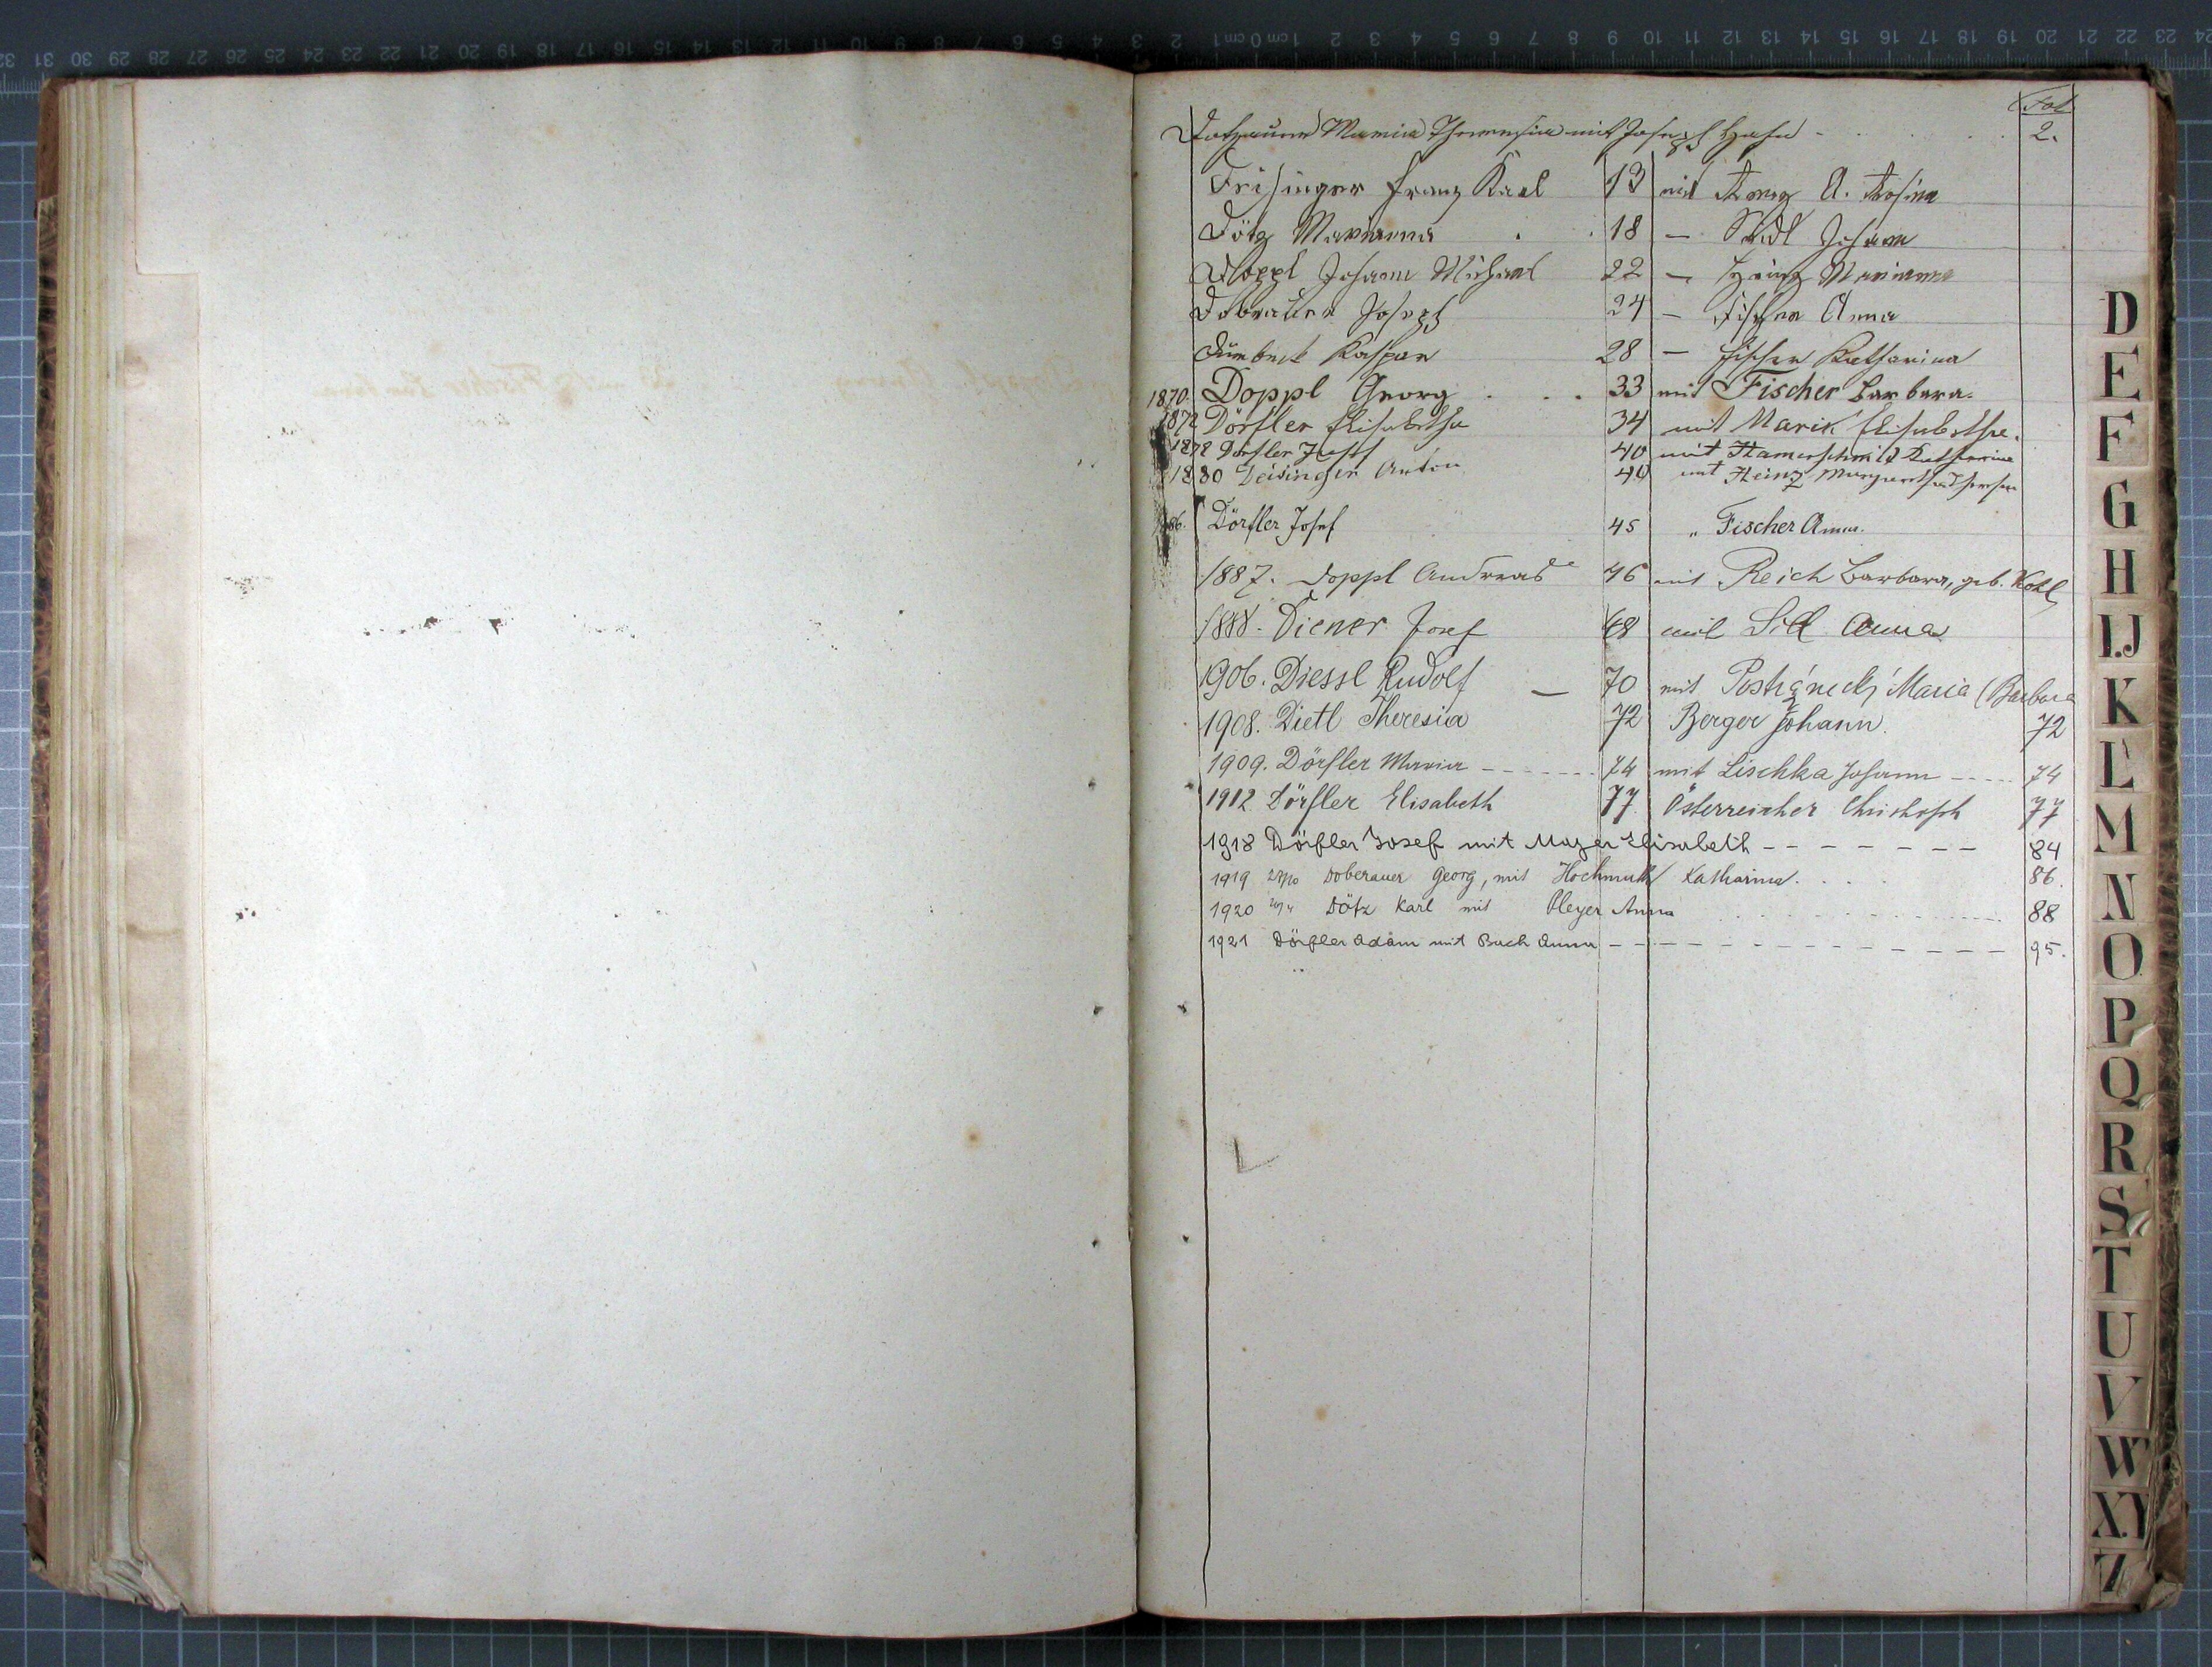 Fol
Maria Theresia mit Joseph Hahn 2.
Franz Karl 13 mit A. Rosina
Dötz Marianna 18 — Seidl Johann
Doppl Johann Michael 22 — Heinz Marianna
Doberauer Joseph 24 — Fischer Anna
Dümbeck Kaspar 28 — Fischer Katharina
1870. Doppl Georg . . . 33 mit Fischer Barbara.
1872 Dörfler Elisabetha 34 mit Marik Elisabetha.
1878 Dörfler Josef 40 mit Hamerschmid Katharina
1880 Deisinger Anton 40 mit Heinz Margaretha Theresia
86. Dörfler Josef 45 „ Fischer Anna.
1887. Doppl Andreas 46 mit Reich Barbara, geb. Kohl
1888. Diener Josef 48 mit Sill Anna
1906. Diessl Rudolf — 70 mit Maria (Barbara
1908. Dietl Theresia 72 Berger Johann. 72
1909. Dörfler Maria - - - - - - - 74 mit Lischka Johann - - - - - 74
1912 Dörfler Elisabeth 77 Österreicher Christoph 77
1918 Dörfler Josef mit Mayer Elisabeth - - - - - - - 84
1919 Doberauer Georg, mit Hochmuth Katharina . . . . 86.
1920 Dötz Karl mit Pleyer Anna 88
1921 Dörfler Adam mit Bach Anna - - - - - - - - - - - - - 95.
D
E
F
G
H
I.J
K
L
M
N
O
P
Q
R
S
T
U
V
W
X.Y
Z
32 31 30 29 28 27 26 25 24 23 22 21 20 19 18 17 16 15 14 13 12 11 10 9 8 7 6 5 4 3 2 1cm 0 cm1 2 3 4 5 6 7 8 9 10 11 12 13 14 15 16 17 18 19 20 21 22 23 24